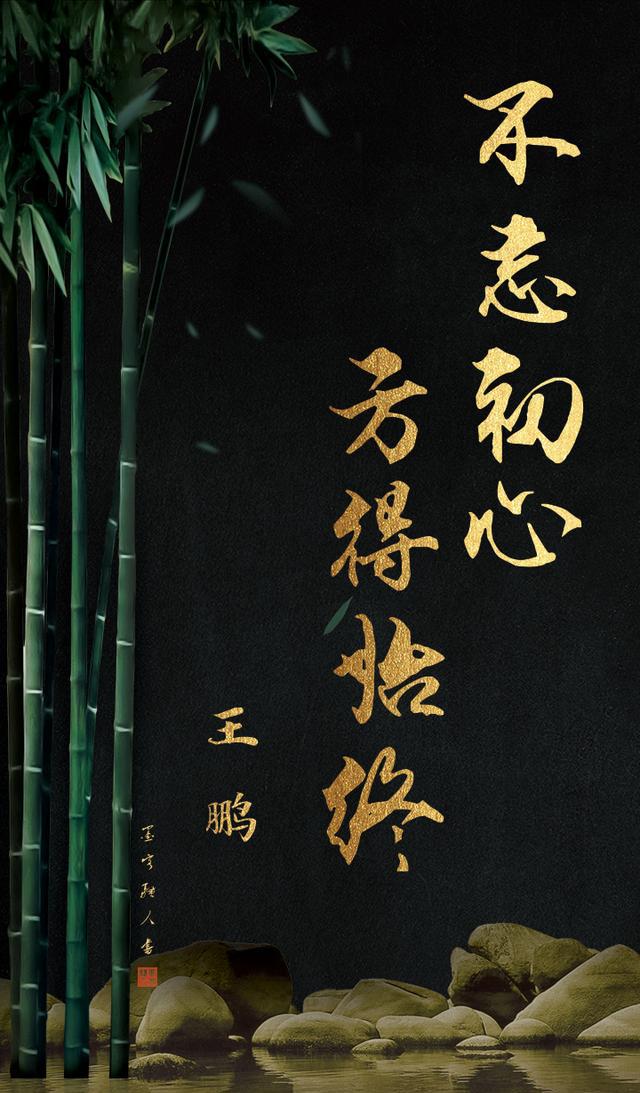 不忘初心
方得始终
王鹏
墨 人书